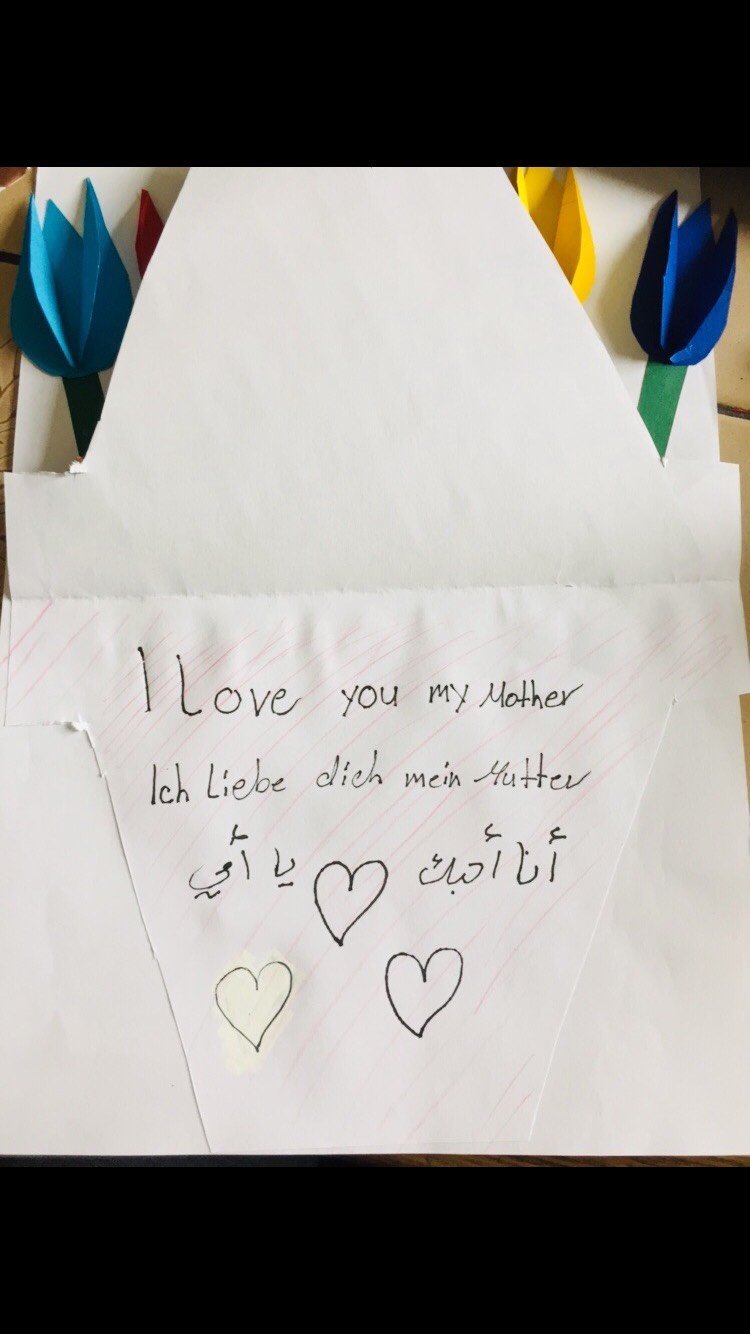 I Love you my Mother
Ich Liebe dich mein Mutter
أنا أحبك يا أمي